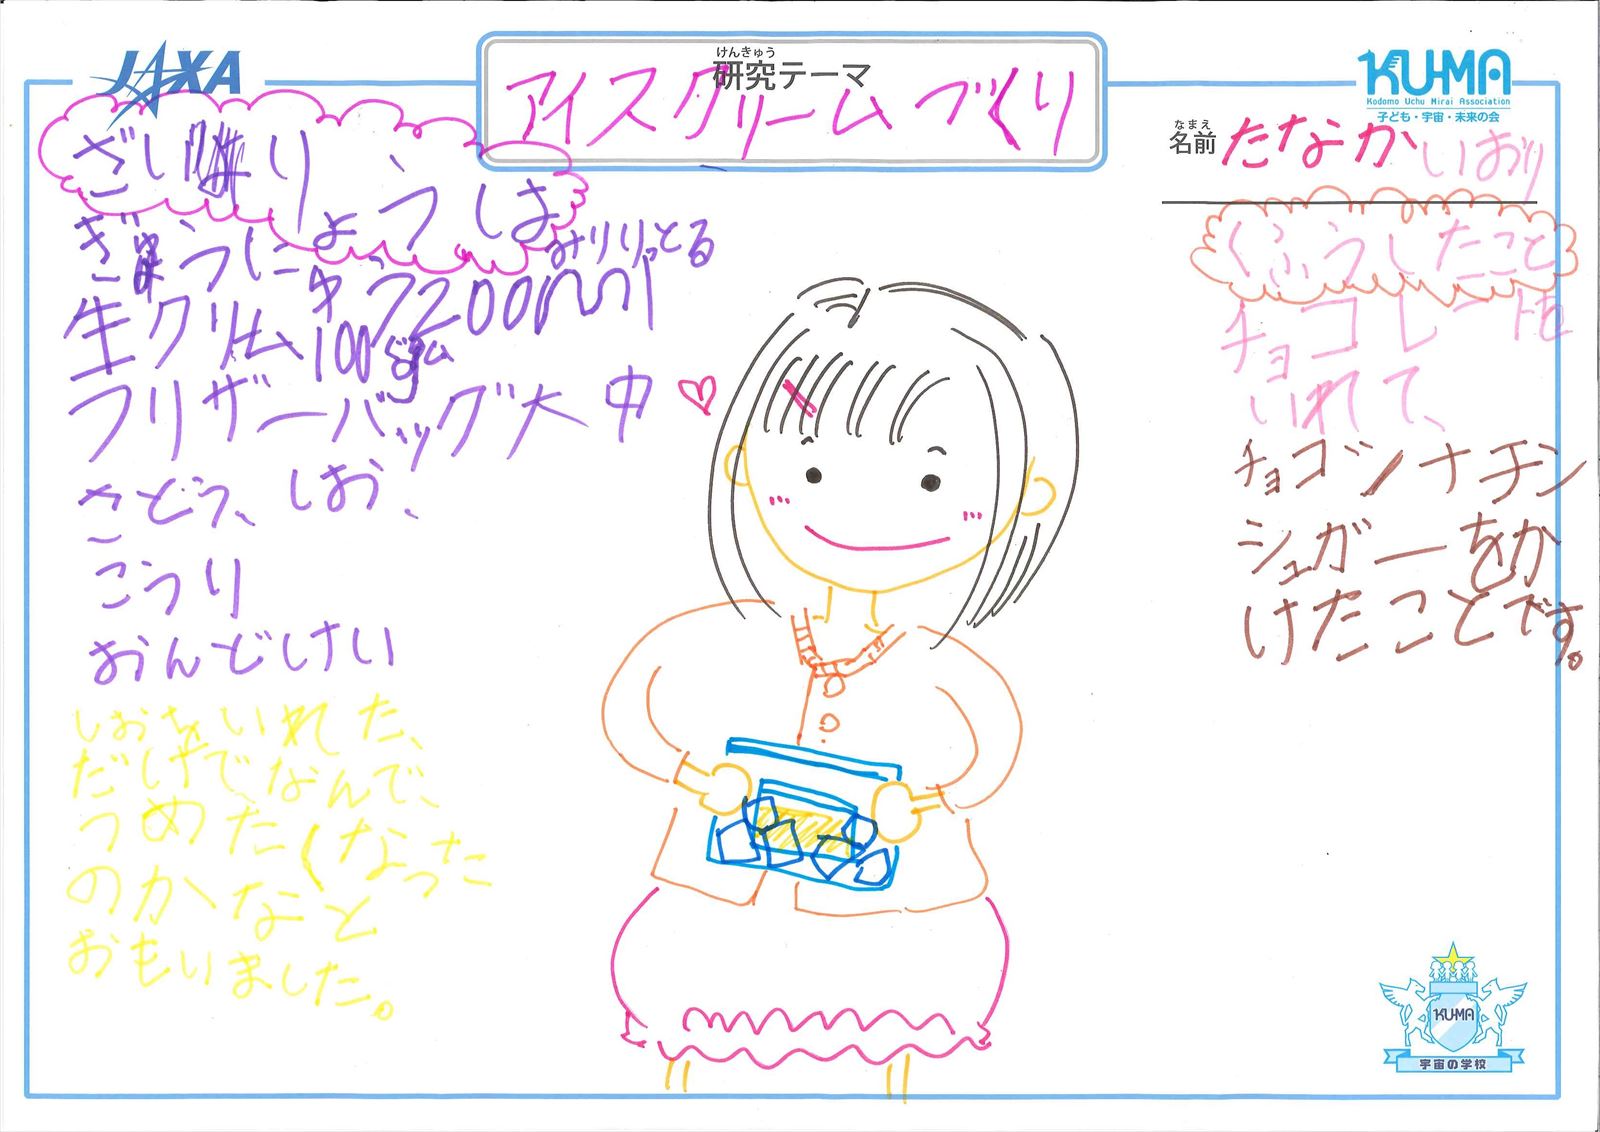 JAXA
けんきゅう
研究テーマ
アイスクリームづくり
KU-MA
Kodomo Uchu Mirai Association
子ども・宇宙・未来の会
なまえ
名前 たなかいおり
ざいりょうは
ぎゅうにゅう200ml
みりりっとる
生クリーム100g
ぐらむ
フリザーバッグ大中
さとう、しお、
こうり
おんどけい
しおをいれた、
だけで、なんで、
つめたくなった
のかなと
おもいました。
くふうしたこと
チョコレートを
いれて、
チョコ
シュガーをか
けたことです。
KU-MA
宇宙の学校